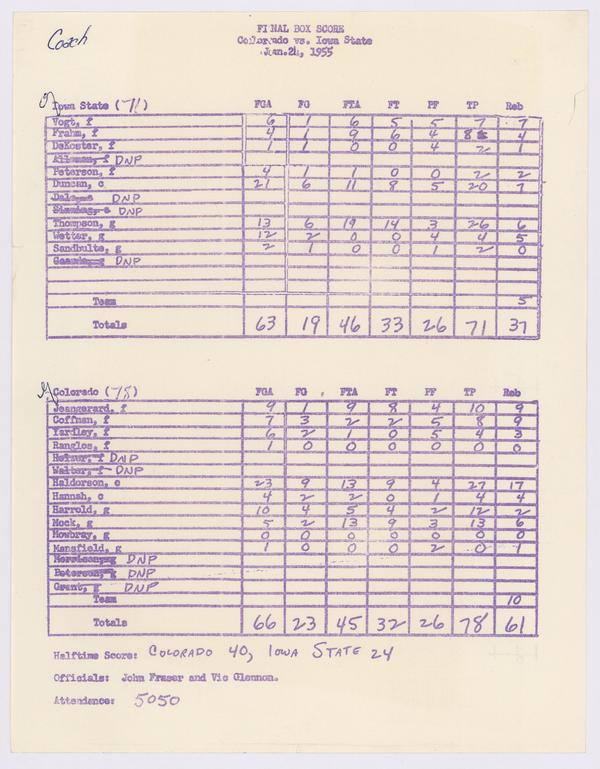 Coach
FINAL BOX SCORE
Colorado vs. Iowa State
Jan. 24, 1955
Iowa State (71) FGA FG FTA FT PF TP Reb
Vogt, f 6 1 6 5 5 7 7
Frahm, f 4 1 9 6 4 8 4
DeKoster, f 1 1 0 0 4 2 1
DNP
Peterson, f 4 1 1 0 0 2 2
Duncan, c 21 6 11 8 5 20 7
DNP
DNP
Thompson, g 13 6 19 14 3 26 6
Wetter, g 12 2 0 0 4 4 5
Sandbulte, g 2 1 0 0 1 2 0
DNP
Team 5
Totals 63 19 46 33 26 71 37
Colorado (78) FGA FG FTA FT PF TP Reb
Jeangerard, f 9 1 9 8 4 10 9
Coffman, f 7 3 2 2 5 8 9
Yardley, f 6 2 1 0 5 4 3
Ranglos, f 1 0 0 0 0 0 0
DNP
Walter, f DNP
Haldorson, c 23 9 13 9 4 27 17
Hannah, c 4 2 2 0 1 4 4
Harrold, g 10 4 5 4 2 12 2
Mock, g 5 2 13 9 3 13 6
Mowbray, g 0 0 0 0 0 0 0
Mansfield, g 1 0 0 0 2 0 1
Morrison, g DNP
Peterson, g DNP
Grant, g DNP
Team 10
Totals 66 23 45 32 26 78 61
Halftime Score: COLORADO 40, IOWA STATE 24
Officials: John Fraser and Vic Glennon.
Attendance: 5050